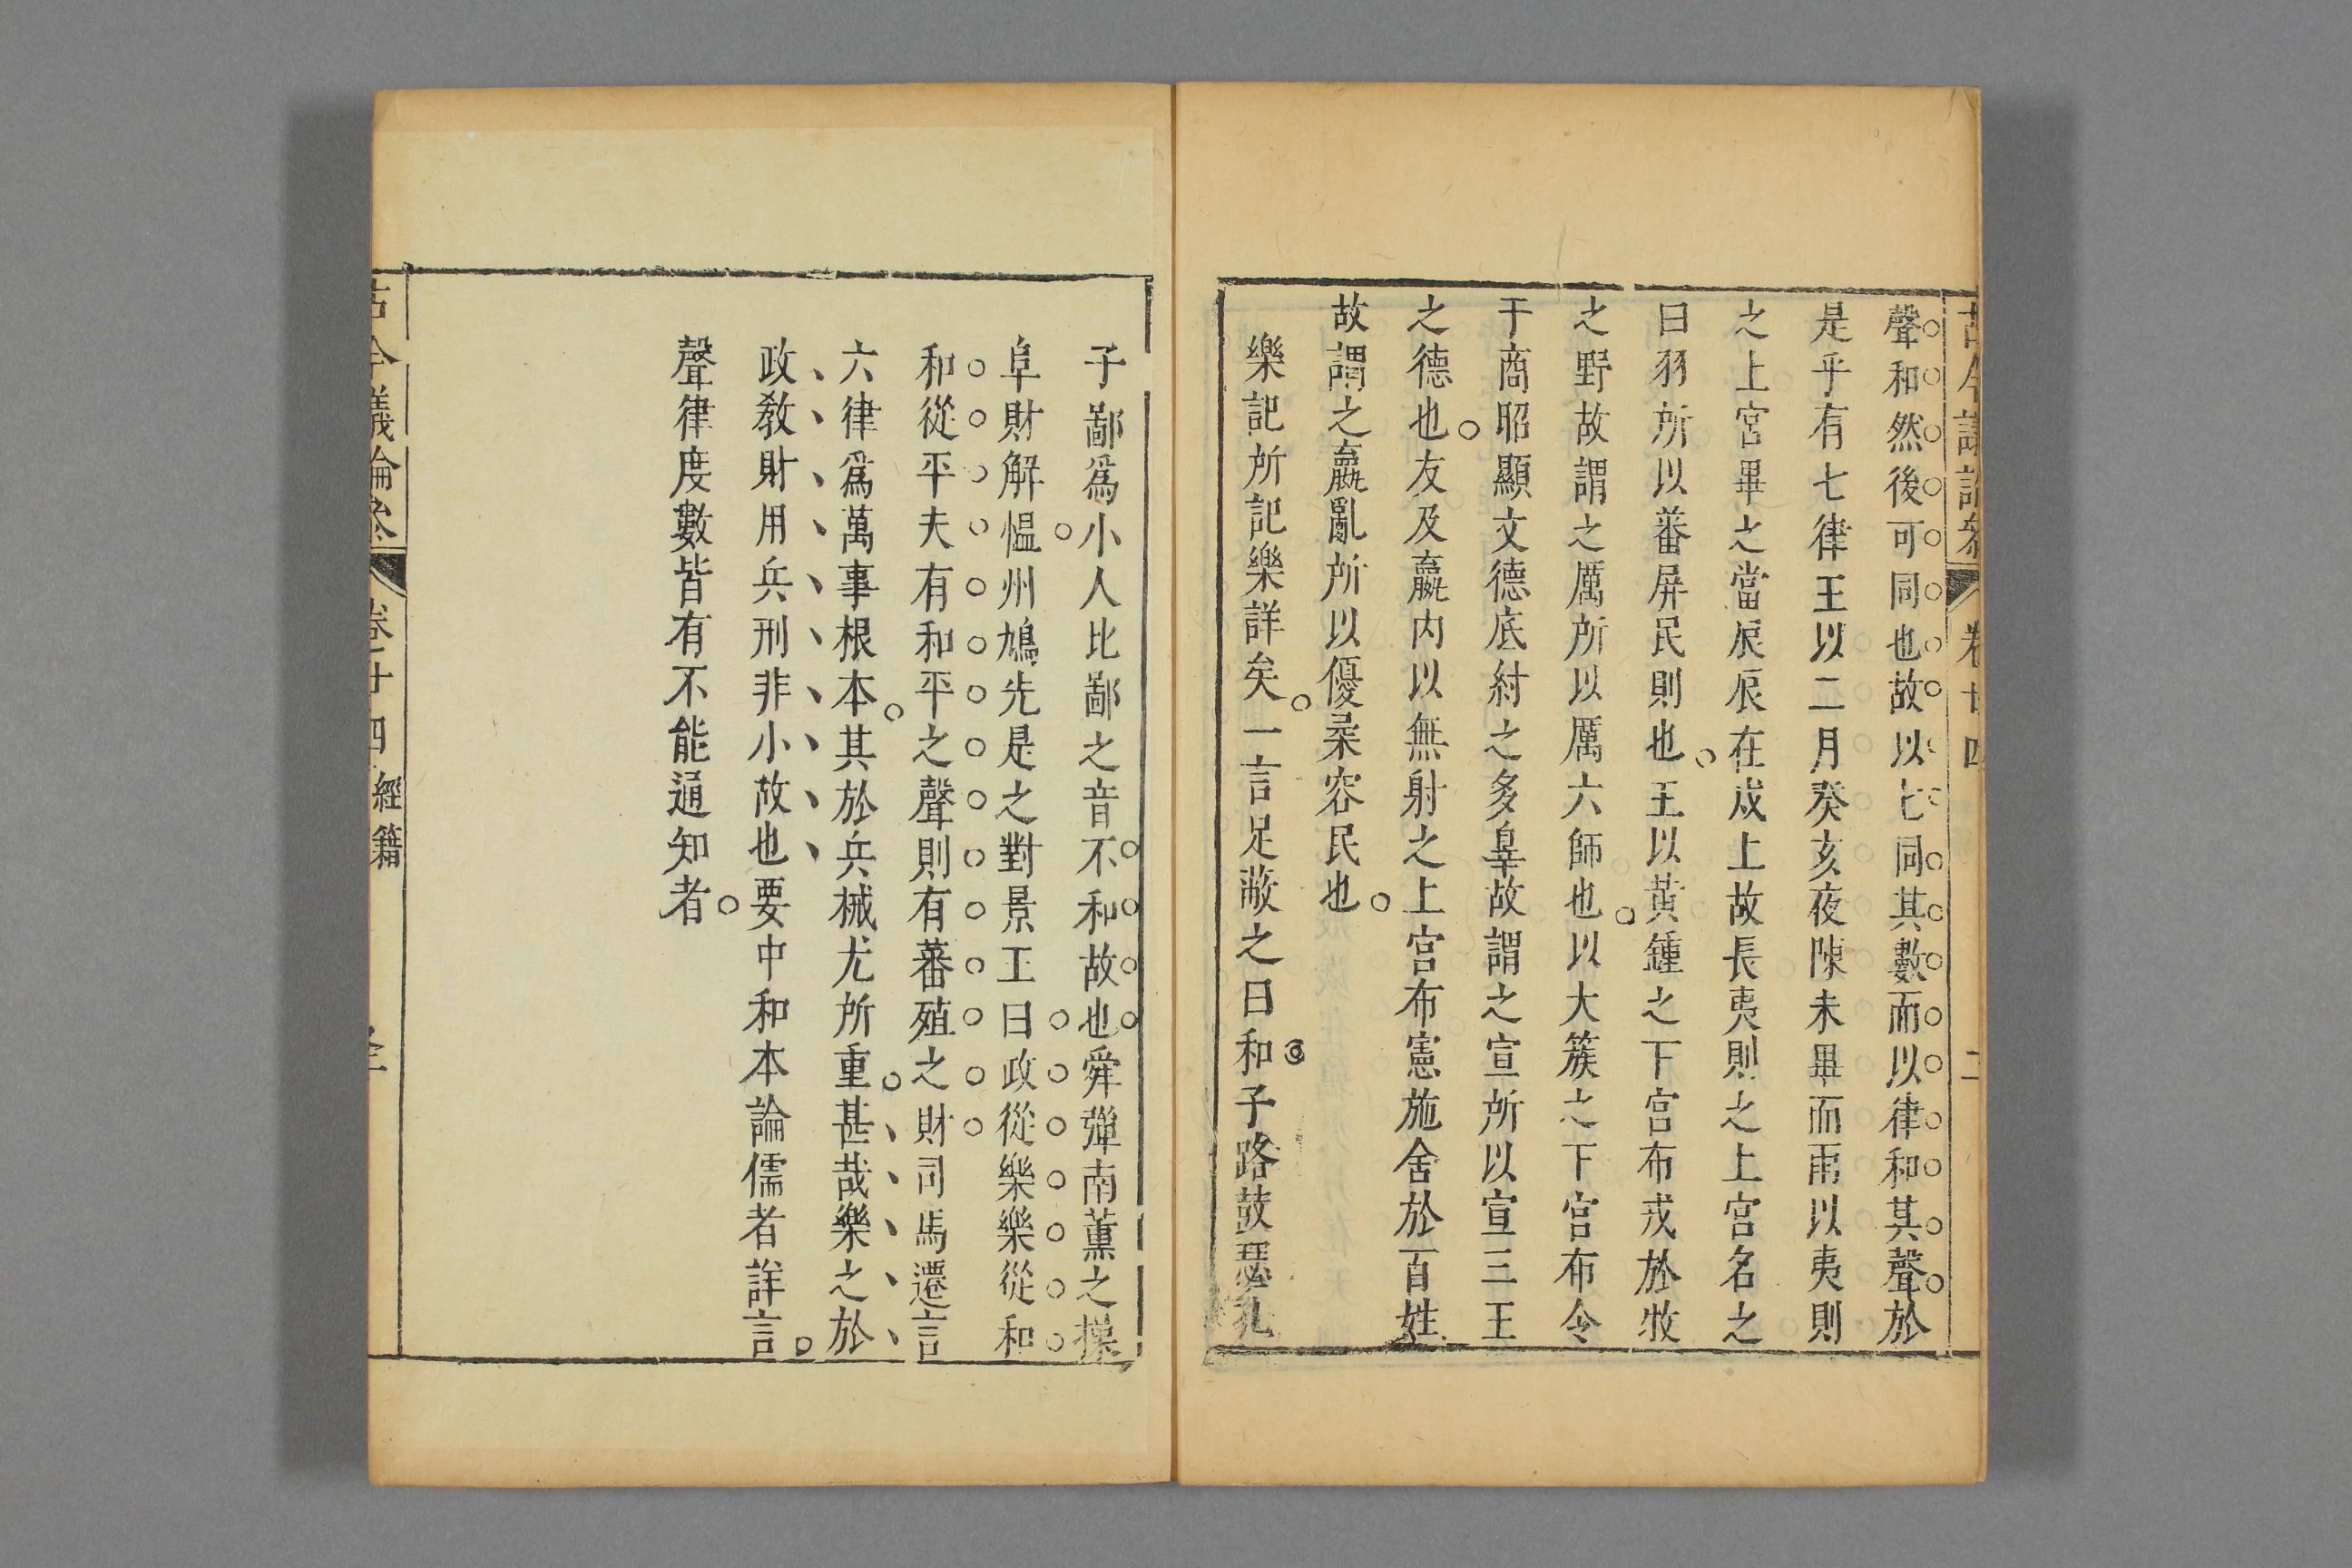 聲和然後可同也故以七同其數而以律和其聲於
是乎有七律王以二月癸亥夜陳未畢而雨以夷則
之上宮畢之當辰辰在戌上故長夷則之上宮名之
曰羽所以蕃屏民則也王以黃鍾之下宮布戎於牧
之野故謂之厲所以厲六師也以大簇之下宮布令
于商昭顯文德底紂之多辠故謂之宣所以宣三王
之德也友及嬴内以無射之上宮布憲施舍於百姓
故謂之嬴亂所以優柔容民也
樂記所記樂詳矣一言足蔽之曰和子路鼓瑟孔
子鄙爲小人比鄙之音不和故也舜彈南薰之操
阜財解慍州鳩先是之對景王曰政從樂樂從和
和從平夫有和平之聲則有蕃殖之財司馬遷言
六律爲萬事根本其於兵械尤所重甚哉樂之於
政敎財用兵刑非小故也要中和本論儒者詳言
聲律度數皆有不能通知者
卷廿四 經籍